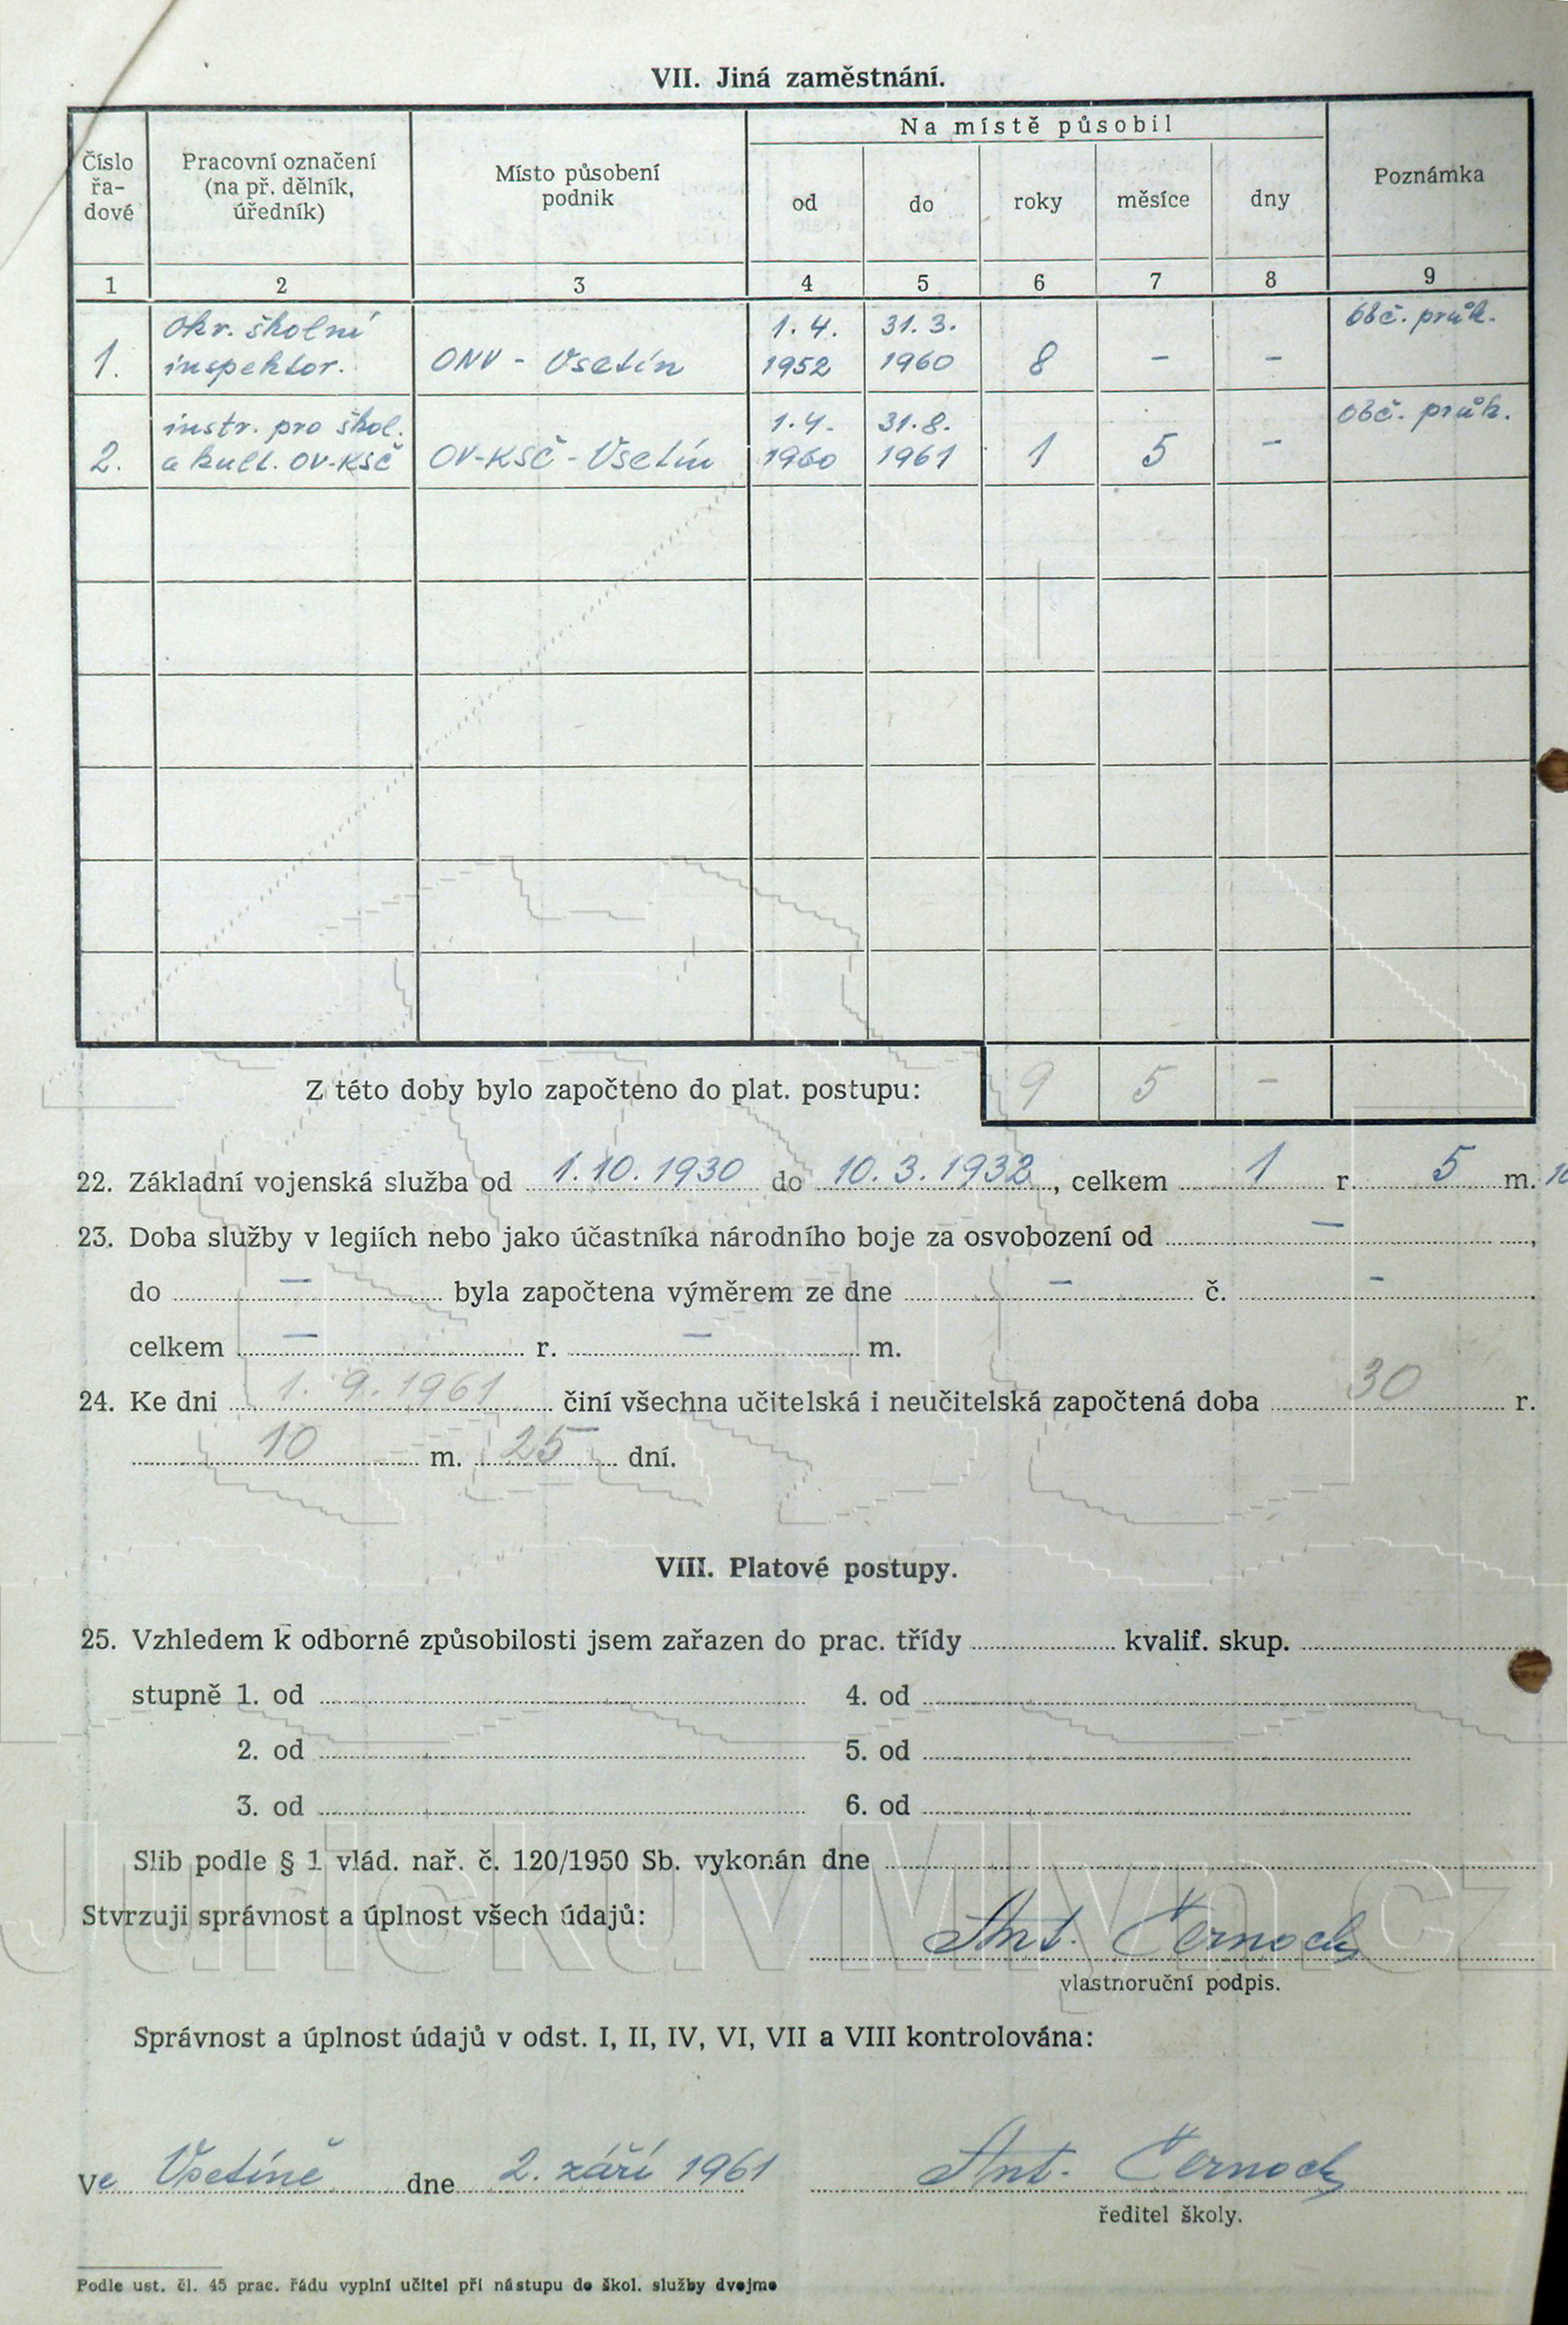 VII. Jiná zaměstnání.
Číslo řa- dové
Pracovní označení (na př. dělník, úředník)
Místo působení podnik
Na místě působil
od do roky měsíce dny
Poznámka
1 2 3 4 5 6 7 8 9
okr. školní 1. 4. 31. 3. obč. průk.
1. inspektor. ONV - Vsetín 1952 1960 8 – –
instr. pro škol. 1. 4. 31. 8. obč. průk.
2. a kult. OV-KSČ OV-KSČ - Vsetín 1960 1961 1 5 –
Z této doby bylo započteno do plat. postupu: 9 5 –
22. Základní vojenská služba od 1. 10. 1930 do 10. 3. 1932, celkem 1 r. 5 m. 10
23. Doba služby v legiích nebo jako účastníka národního boje za osvobození od –,
do – byla započtena výměrem ze dne – č. –.
celkem – r. – m.
24. Ke dni 1. 9. 1961 činí všechna učitelská i neučitelská započtená doba 30 r.
10 m. 25 dní.
VIII. Platové postupy.
25. Vzhledem k odborné způsobilosti jsem zařazen do prac. třídy kvalif. skup.
stupně 1. od 4. od
2. od 5. od
3. od 6. od
Slib podle § 1 vlád. nař. č. 120/1950 Sb. vykonán dne
Stvrzuji správnost a úplnost všech údajů:
Ant. Černoch
vlastnoruční podpis.
JurickuvMlyn.cz
Správnost a úplnost údajů v odst. I, II, IV, VI, VII a VIII kontrolována:
Ve Vsetíně dne 2. září 1961 Ant. Černoch
ředitel školy.
Podle ust. čl. 45 prac. řádu vyplní učitel při nástupu do škol. služby dvojmo